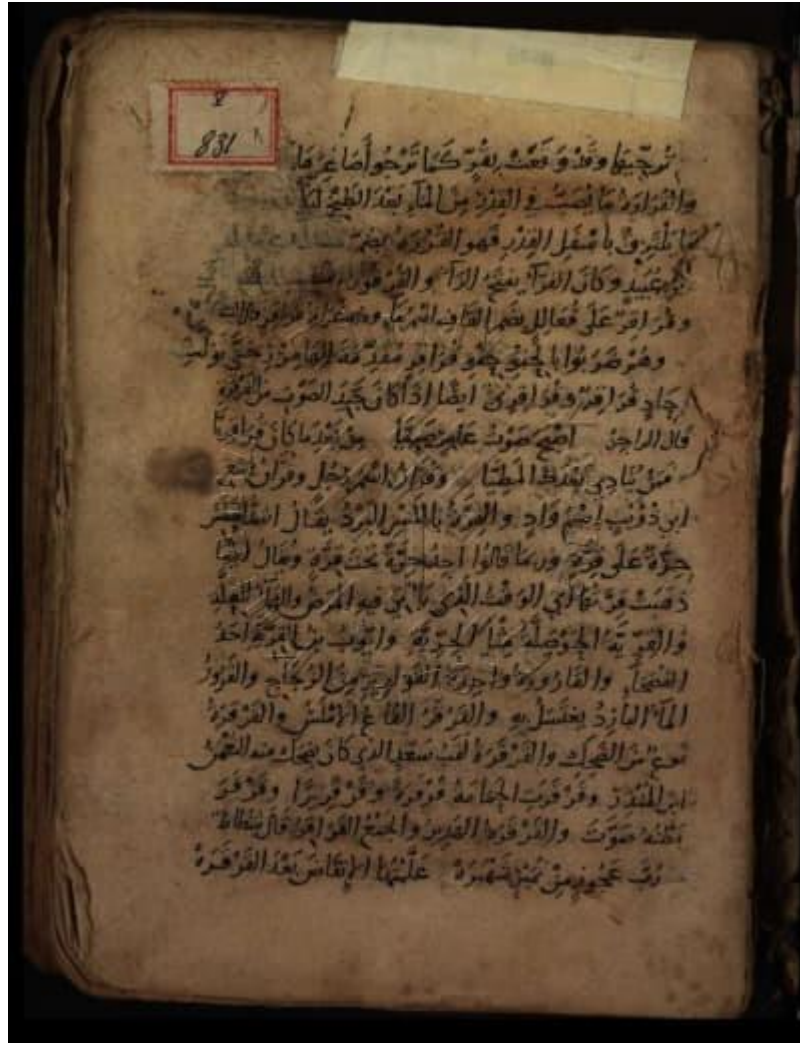 V
831
تُرَجِّيهَا وَقَدْ وَقَعَتْ بِقُرٍّ كَمَا تَرْجُو أَصَاغِرَهَا
والقُرَارَةُ مَا يُصَبُّ في القِدْرِ مِنَ المَاءِ بَعْدَ الطَّبْخِ
مَا يَلْتَزِقُ بِأَسْفَلِ القِدْرِ فَهو القُرُرَةُ بضم
عُبَيْدٍ وكانَ الفَرَّاءُ بفتح الرَّاء والقُرْقُورُ
وقُرَاقِرُ عَلَى فُعَالِلٍ بضَمِّ القَافِ اسْمُ مَاءٍ
وهُمْ ضَرَبُوا بِالْحِنْوِ حِنْوِ قُرَاقِرٍ مُقَدِّمَةَ الهَامَرْزِ حتَّى تَوَلَّتِ
حَادٍ قُرَاقِرٌ وقُرَاقِرِيٌّ ايضًا اذَا كانَ جَيِّدَ الصَّوْتِ من القَرْقَرَةِ
قال الراجز اصْبَحَ صَوْتُ عَامِرٍ صَئِيًّا مِنْ بَعْدِ مَا كانَ قُرَاقِرِيَّا
فَمَنْ يُنَادِي بَعْدَكَ المَطِيَّا وقُرَّانُ اسْمُ رَجُلٍ وقُرَّانُ
ابى ذُؤَيْبٍ اسْمُ وَادٍ والقِرَّةُ بالكَسْرِ البَرْدُ يقالُ
حِرَّةٌ عَلَى قِرَّةٍ وربما قالوا اجِدُ حِرَّةً تحتَ قِرَّةٍ ويقالُ ايضًا
ذَهَبَتْ قِرَّتُهَا اي الوَقْتُ الذي يأتي فيهِ المَرَضُ والهَاءُ للعِلَّةِ
والقِرِّيَّةُ الحَوْصَلَةُ مِثْلُ الجِرِّيَّةِ وايُّوبُ بن القِرِّيَّةِ احَدُ
الفُصَحَاءِ والقَارُورَةُ واحِدَةُ القَوَارِيرِ مِنَ الزُّجَاجِ والقَرُورُ
المَاءُ البَارِدُ يُغْتَسَلُ بِهِ والقَرْقَرُ القَاعُ الأَمْلَسُ والقَرْقَرَةُ
نَوعٌ مِنَ الضَّحِكِ والقَرْقَرَةُ لَقَبُ سَعْدٍ الذي كانَ يضحكُ منه النُّعْمَنُ
ابنُ المُنْذِرِ وقَرْقَرَتِ الحَمَامَةُ قَرْقَرَةً وقَرْقَرِيرًا وقَرْقَرَ
بَطْنُهُ صَوَّتَ والقَرْقَرَةُ الهَدِيرُ والجَمْعُ القَرَاقِرُ قال شِظَاظٌ
رُبَّ عَجُوزٍ مِنْ نُمَيْرٍ شَهْبَرَهْ عَلَّمْتُهَا الإِنْقَاضَ بَعْدَ القَرْقَرَهْ